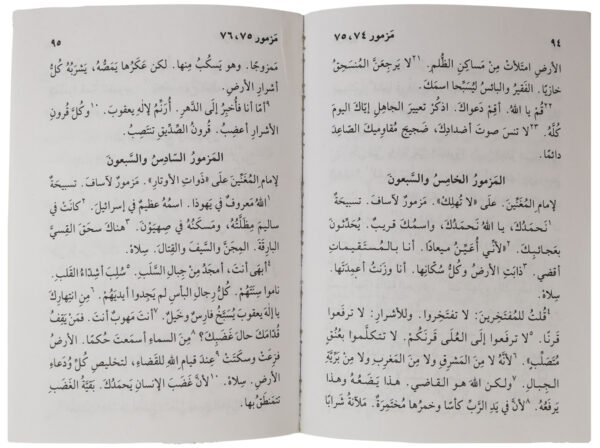 ٩٤
مَزمور ٧٤، ٧٥
الأرضِ امتَلأتْ مِنْ مَساكِنِ الظُّلمِ. ٢١لا يَرجِعَنَّ المُنسَحِقُ
خازيًا. الفَقيرُ والبائسُ ليُسَبِّحا اسمَكَ.
٢٢قُمْ يا اللهُ. أقِمْ دَعواكَ. اذكُرْ تعييرَ الجاهِلِ إيّاكَ اليومَ
كُلَّهُ. ٢٣لا تنسَ صوتَ أضدادِكَ، ضَجيجَ مُقاوِميكَ الصّاعِدَ
دائمًا.
المَزمورُ الخامِسُ والسَّبعونَ
لإمامِ المُغَنّينَ. علَى «لا تُهلِكْ». مَزمورٌ لآسافَ. تسبيحَةٌ
١نَحمَدُكَ، يا اللهُ نَحمَدُكَ، واسمُكَ قريبٌ. يُحَدِّثونَ
بعَجائبِكَ. ٢«لأنّي أُعَيِّنُ ميعادًا. أنا بالمُستَقيماتِ
أقضي. ٣ذابَتِ الأرضُ وكُلُّ سُكّانِها. أنا وزَنتُ أعمِدَتَها.
سِلاهْ.
٤قُلتُ للمُفتَخِرينَ: لا تفتَخِروا. وللأشرارِ: لا ترفَعوا
قَرنًا. ٥لا ترفَعوا إلَى العُلَى قَرنَكُمْ. لا تتكلَّموا بعُنُقٍ
مُتَصَلِّبٍ». ٦لأنَّهُ لا مِنَ المَشرِقِ ولا مِنَ المَغرِبِ ولا مِنْ بَرّيَّةِ
الجِبالِ. ٧ولكن اللهَ هو القاضي. هذا يَضَعُهُ وهذا
يَرفَعُهُ. ٨لأنَّ في يَدِ الرَّبِّ كأسًا وخمرُها مُختَمِرَةٌ. مَلآنَةٌ شَرابًا
مَزمور ٧٥، ٧٦
٩٥
مَمزوجًا. وهو يَسكُبُ مِنها. لكن عَكَرُها يَمَصُّهُ، يَشرَبُهُ كُلُّ
أشرارِ الأرضِ.
٩أمّا أنا فأُخبِرُ إلَى الدَّهرِ. أُرَنِّمُ لإلهِ يعقوبَ. ١٠وكُلَّ قُرونِ
الأشرارِ أعضِبُ. قُرونُ الصِّدّيقِ تنتَصِبُ.
المَزمورُ السّادِسُ والسَّبعونَ
لإمامِ المُغَنّينَ علَى «ذَواتِ الأوتارِ». مَزمورٌ لآسافَ. تسبيحَةٌ
١اللهُ مَعروفٌ في يَهوذا. اسمُهُ عظيمٌ في إسرائيلَ. ٢كانَتْ في
ساليمَ مِظَلَّتُهُ، ومَسكَنُهُ في صِهيَوْنَ. ٣هناكَ سحَقَ القِسيَّ
البارِقَةَ. المِجَنَّ والسَّيفَ والقِتالَ. سِلاهْ.
٤أبهَى أنتَ، أمجَدُ مِنْ جِبالِ السَّلَبِ. ٥سُلِبَ أشِدّاءُ القَلبِ.
ناموا سِنَتَهُمْ. كُلُّ رِجالِ البأسِ لم يَجِدوا أيديَهُمْ. ٦مِنِ انتِهارِكَ
يا إلهَ يعقوبَ يُسَبَّخُ فارِسٌ وخَيلٌ. ٧أنتَ مَهوبٌ أنتَ. فمَنْ يَقِفُ
قُدّامَكَ حالَ غَضَبِكَ؟ ٨مِنَ السماءِ أسمَعتَ حُكمًا. الأرضُ
فزِعَتْ وسكَتَتْ ٩عِندَ قيامِ اللهِ للقَضاءِ، لتَخليصِ كُلِّ وُدَعاءِ
الأرضِ. سِلاهْ. ١٠لأنَّ غَضَبَ الإنسانِ يَحمَدُكَ. بَقيَّةُ الغَضَبِ
تتمَنطَقُ بها.